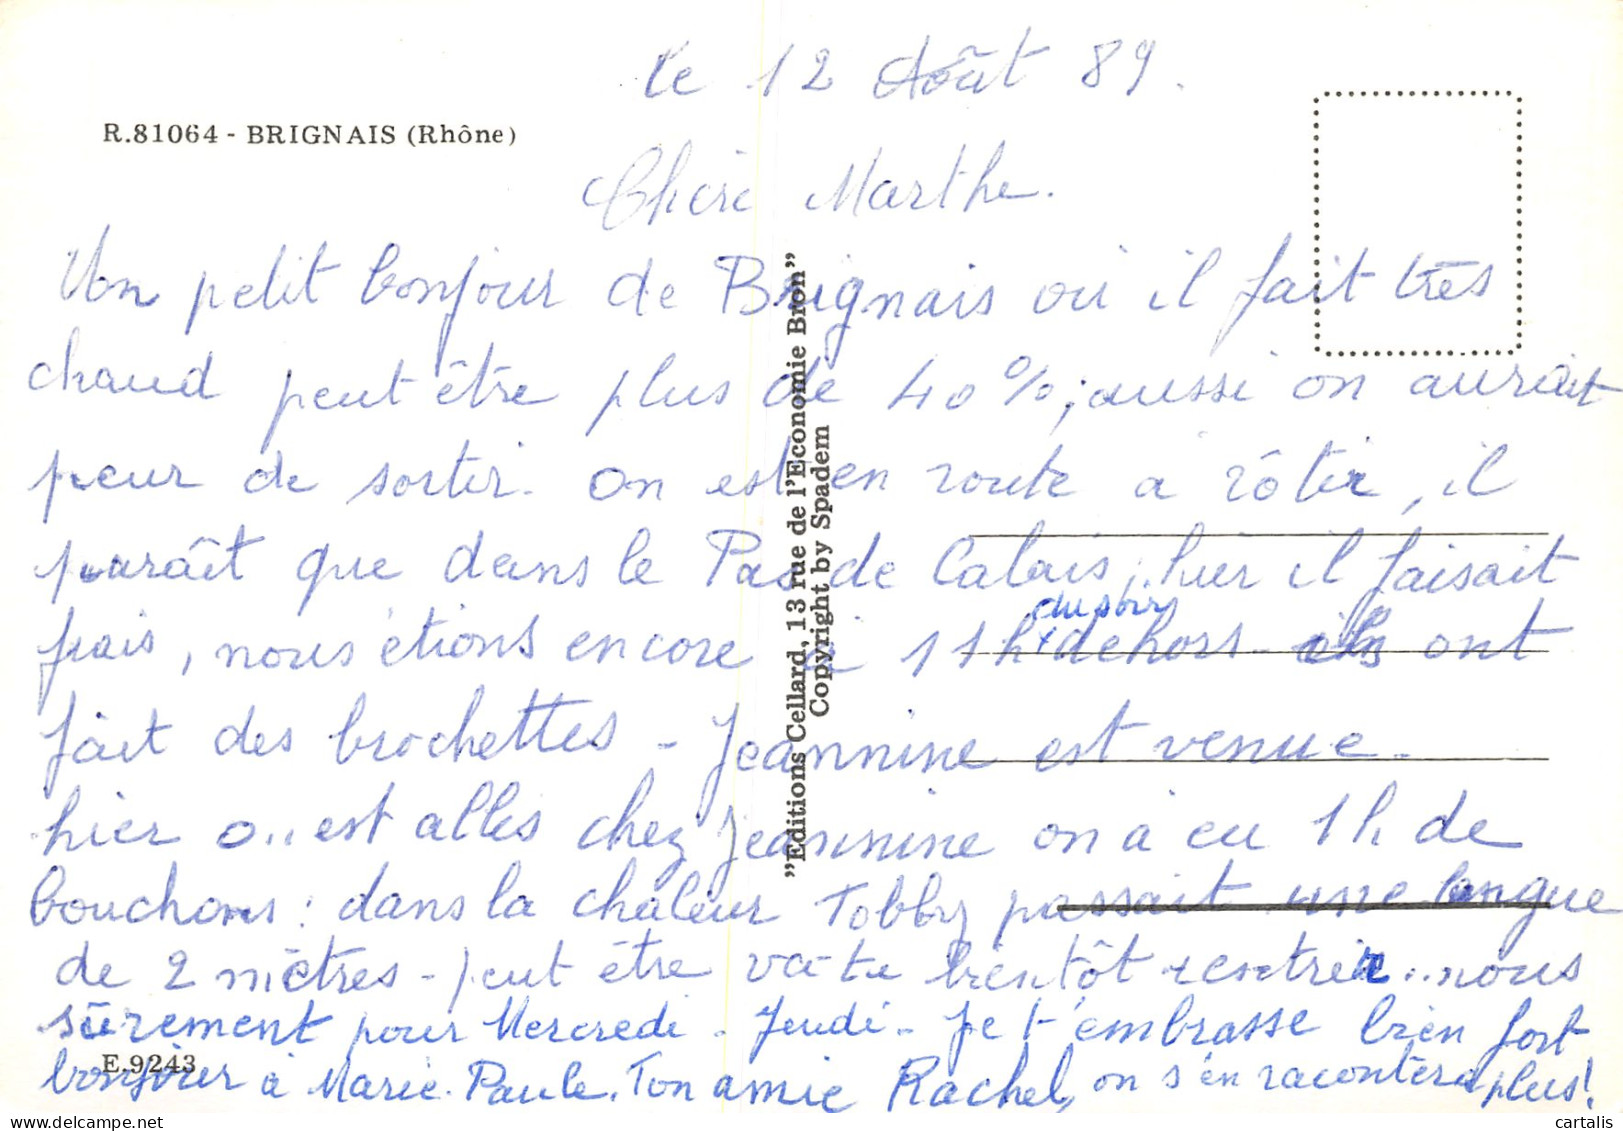 le 12 Août 89.
R.81064 - BRIGNAIS (Rhône)
Chère Marthe.
Un petit bonjour de Brignais où il fait très
chaud peut être plus de 40 %; aussi on aurait
peur de sortir. On est en route a rôtir, il
paraît que dans le Pas de Calais, hier il faisait
du soir
frais, nous étions encore à 11h dehors - ils ont
fait des brochettes - Jeannine est venue -
hier o.. est allés chez Jeannine on a eu 1h de
bouchons : dans la chaleur Tobby passait une langue
de 2 mètres - peut être va-tu bientôt rentrer .. nous
sûrement pour Mercredi - Jeudi - Je t'embrasse bien fort
E.9243
bonjour à Marie-Paule. Ton amie Rachel, on s'en racontera plus!
"Editions Cellard, 13 rue de l'Economie Bron"
Copyright by Spadem
cartalis
delcampe.net